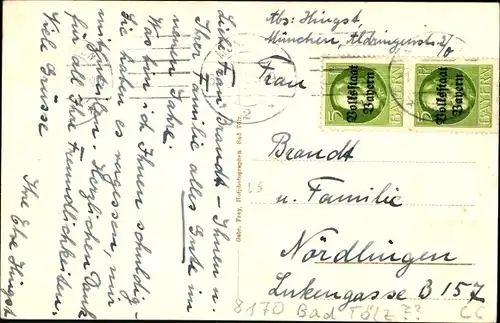 Liebe Frau Brandt - Ihnen u
Ihrer Familie alles Gute im
neuen Jahre.
Was bin ich Ihnen schuldig -
Sie haben es vergessen, mir
mitzuteilen. Herzlichen Dank
für all Ihre Freundlichkeiten.
Viele Grüsse
Ihre Else Hingst
Gebr. Frey, Hofphotographen Bad Tölz.
Abs: Hingst,
München, Aldringenstr. 2/0
Frau
Brandt
u. Familie
Nördlingen
Lukengasse B 157
8170 Bad Tölz ??
5 BAYERN
Volksstaat
Bayern
5 BAYERN
Volksstaat
Bayern